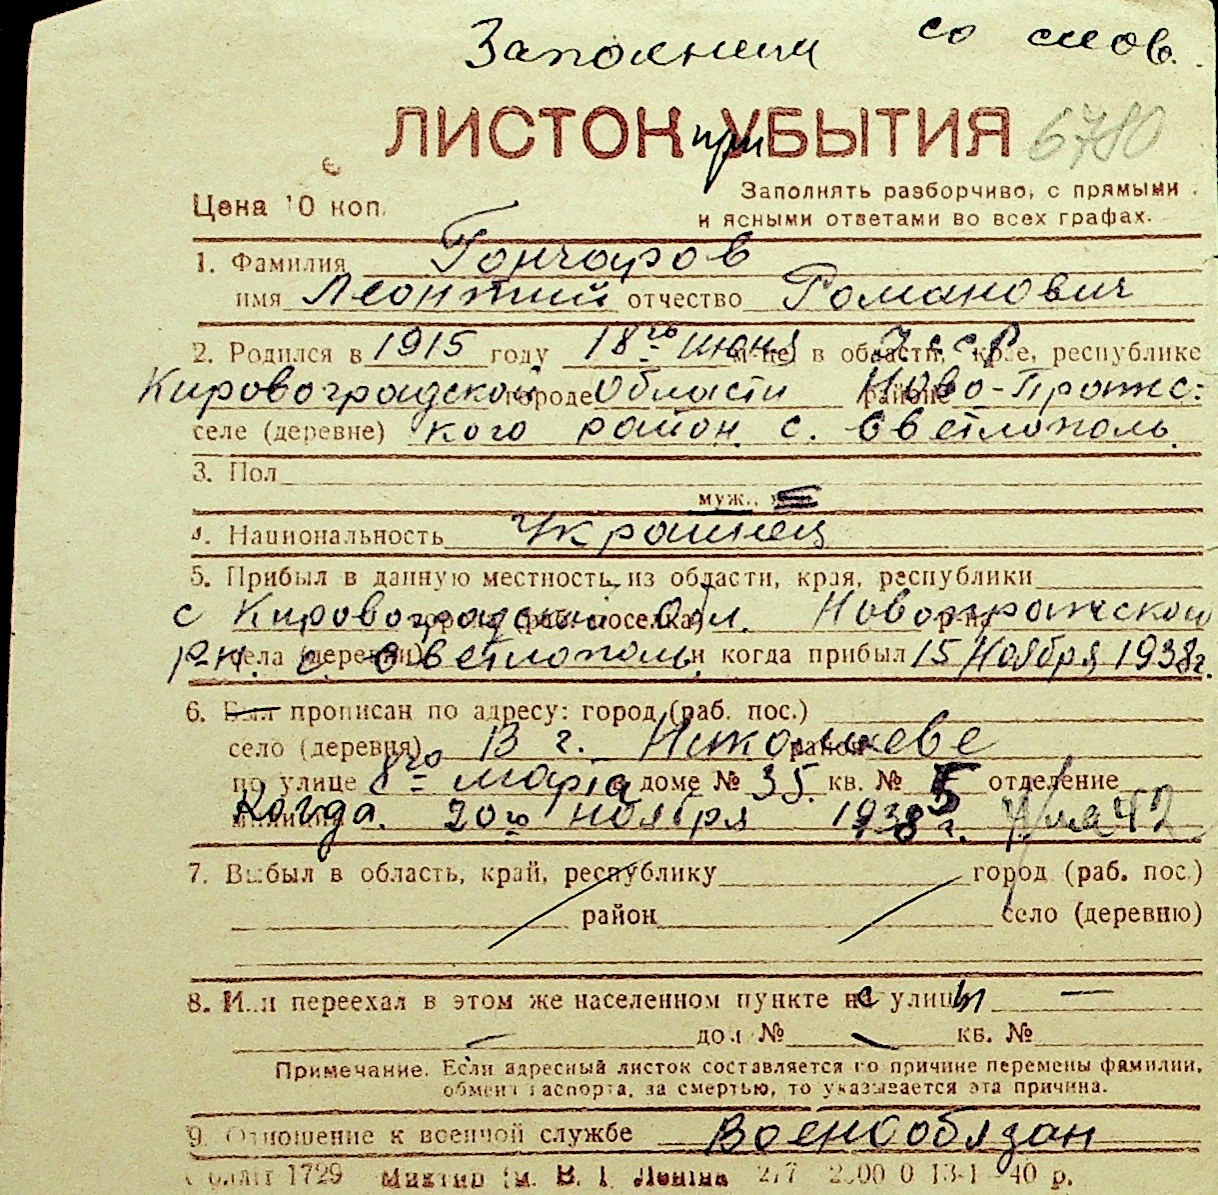 Заполнен со слов.
ЛИСТОК при УБЫТИЯ 6780
Цена 10 коп.
Заполнять разборчиво, с прямыми
и ясными ответами во всех графах.
1. Фамилия Гончаров
имя Леонтий отчество Романович
2. Родился в 1915 году 18го июня м-це, в области, крае, республике УССР
Кировоградской городе области районе Ново-Пражс-
селе (деревне) кого район. с. Светлополь.
3. Пол
муж.,
4. Национальность Украинец
5. Прибыл в данную местность из области, края, республики
с Кировоградской города (раб. поселка) Обл. Новопражской р-на
р-н. села (деревни) с. Светлополь и когда прибыл 15 Ноября 1938г.
6. Был прописан по адресу: город (раб. пос.)
село (деревня) В г. Николаеве район
по улице 8го марта в доме № 35. кв. № 5 отделение
милиции Когда. 20го ноября 1938 г.
7. Выбыл в область, край, республику город (раб. пос.)
район село (деревню)
8. Или переехал в этом же населенном пункте на с улицы —
— дом № — кв. №
Примечание. Если адресный листок составляется по причине перемены фамилии,
обмена паспорта, за смертью, то указывается эта причина.
9. Отношение к военной службе Военообязан
1729 ім. В. І. Леніна 277 13-1 40 р.